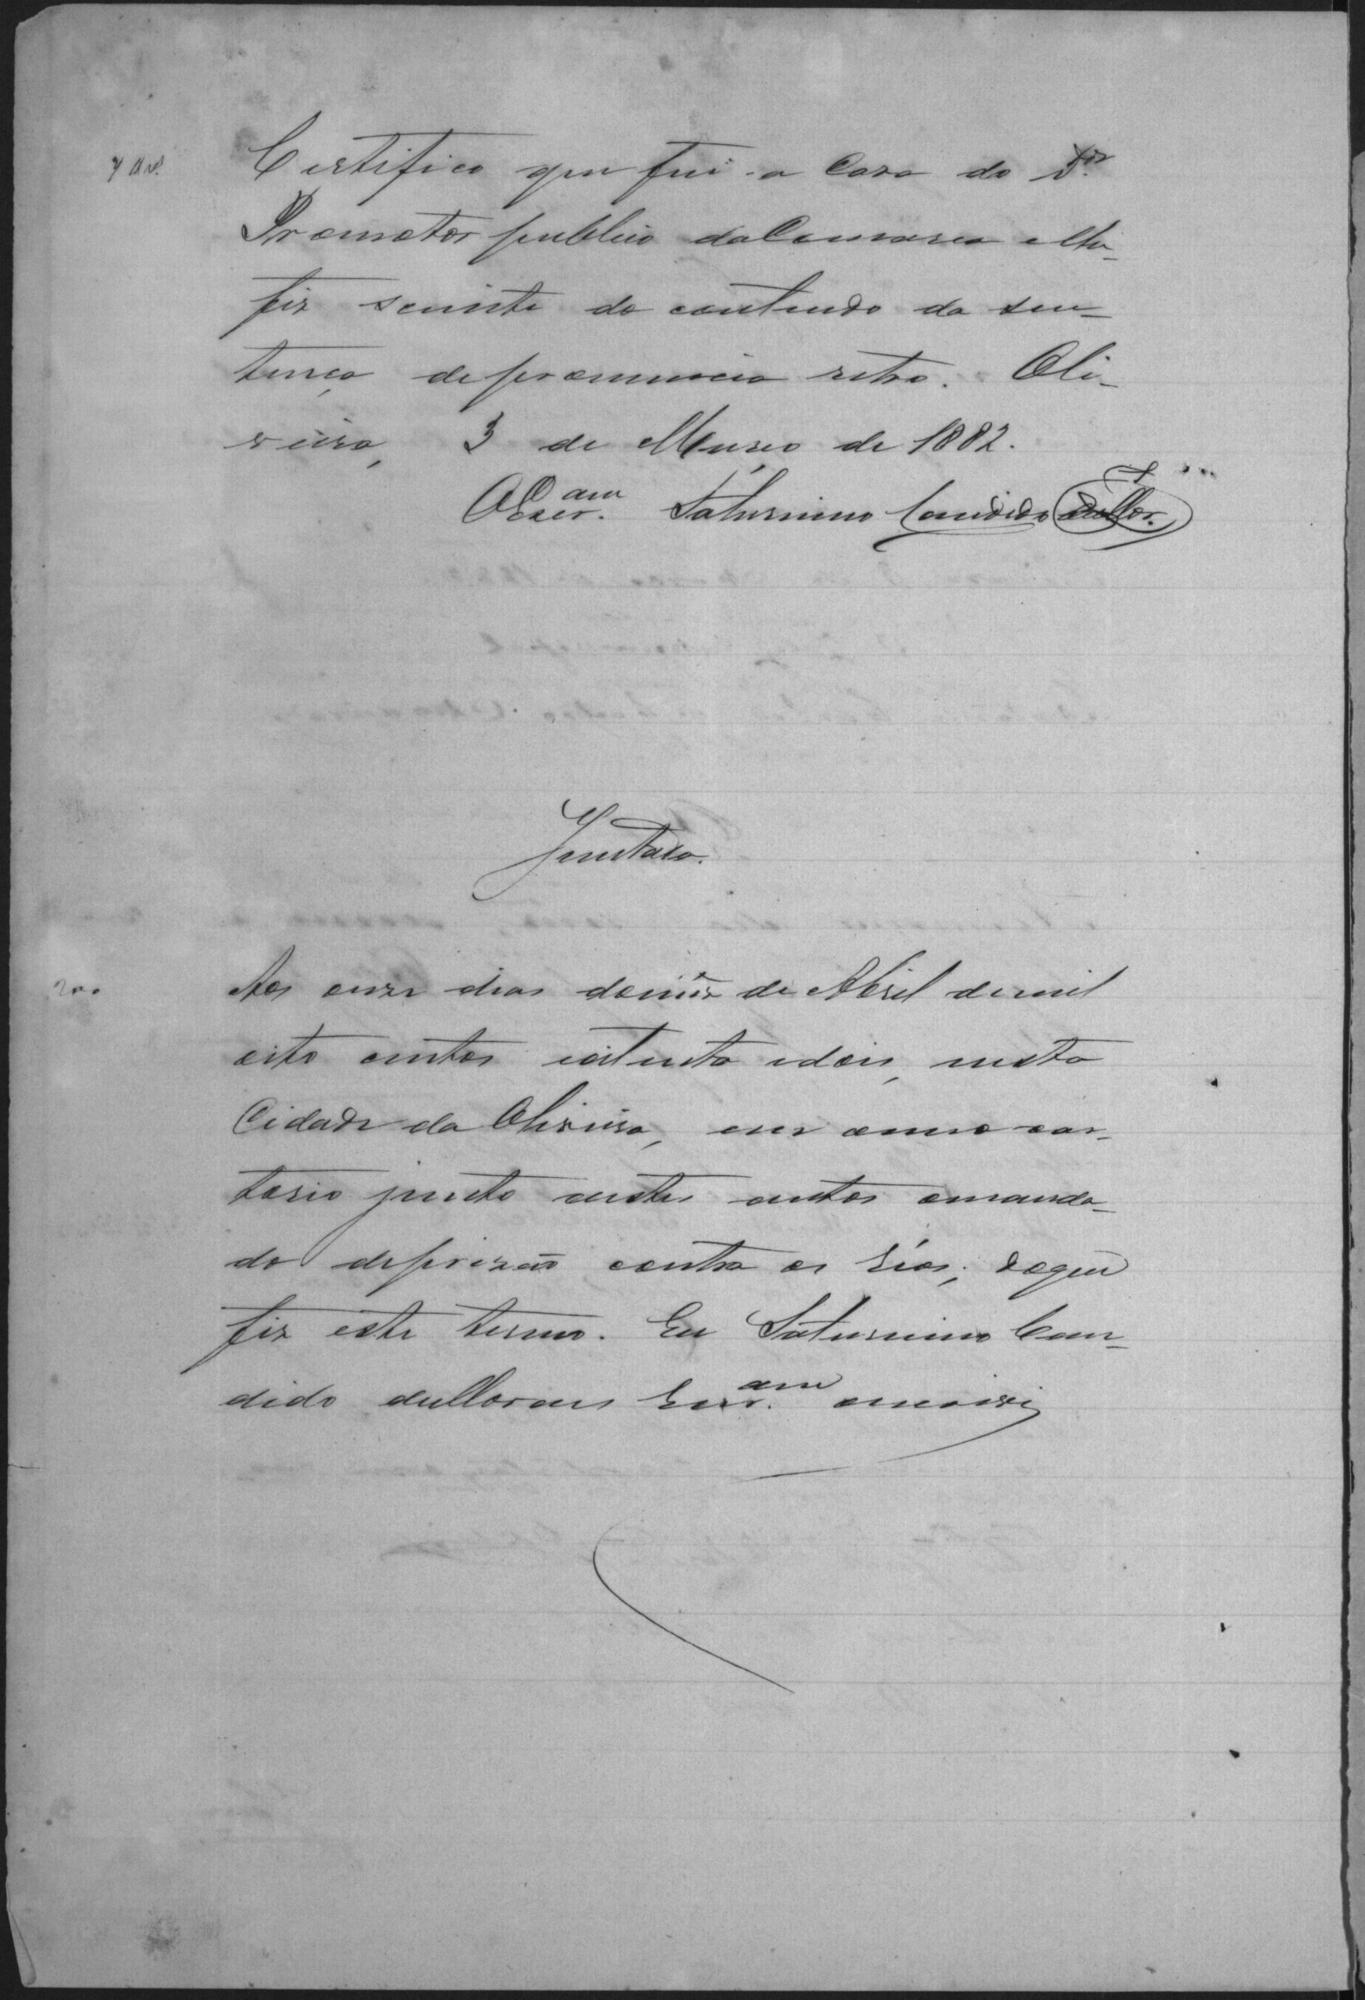 Certifico que fui a Casa do Dr.
Promotor publico da Comarca elhe
fiz sciente do contendo da sen-
tença de pronuncia retro. Oli-
veira, 3 de Março de 1882.
O Escr.am Saturnino Candido de Mor.
Juntada.
Aos onze dias do mez de Abril de mil
oito centos oitenta e dois, nesta
Cidade da Oliveira, em o meu car-
torio junto a estes autos o manda-
do de prizão contra os réos; do que
fiz este termo. Eu Saturnino Can-
dido de Moraes Escr.am o escrevi
200